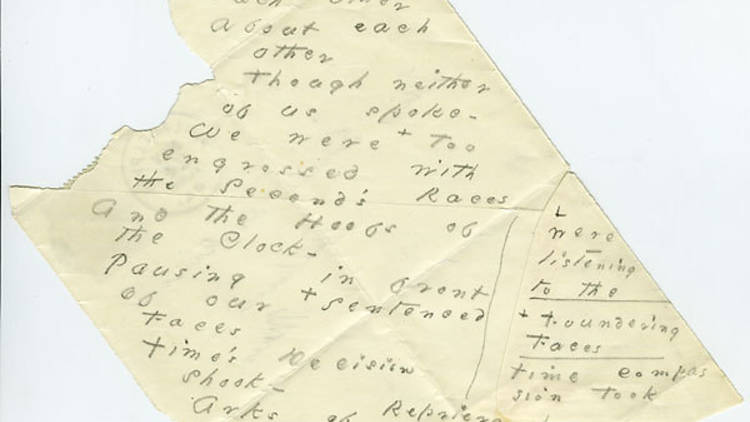 ach other
About each
other
though neither
of us spoke-
We were + too
engrossed with
the Second's Races
And the Hoofs of
the Clock-
Pausing in front
of our + sentenced
Faces
Time's Decision
shook-
Arks of Repriev
were
listening
to the
+ foundering
Faces
time compas
sion took